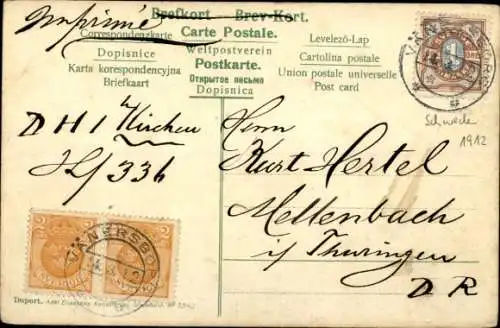 Imprimé
Brefkort Brev-Kort.
Correspondenzkarte Carte Postale. Levelező-Lap
Dopisnice Weltpostverein Cartolina postale
Karta korespondencyjna Postkarte. Union postale universelle
Briefkaart Открытое письмо Post card
Dopisnica
VÄNERSBORG
Schweden
1912
DHI
H/336
Herrn
Kurt Hertel
Mellenbach
i/ Thuringen
DR
2 2
VÄNERSBORG
Import.